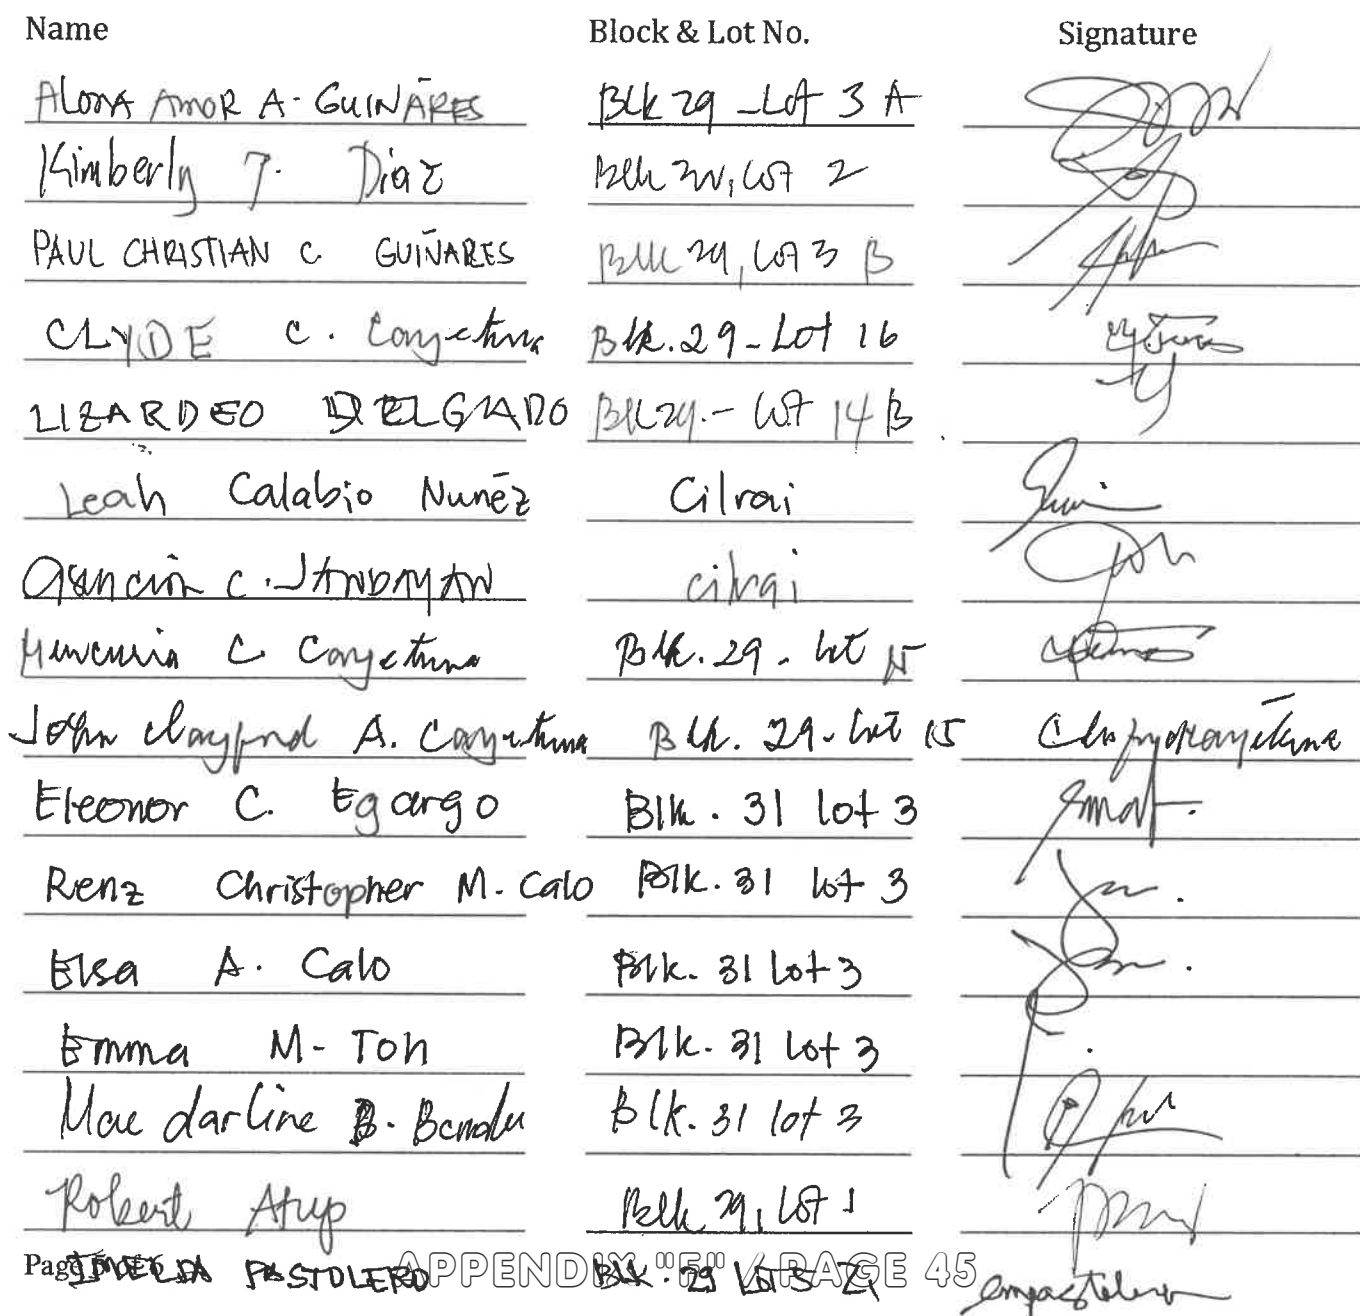 Name Block & Lot No. Signature
Alona Amor A. Guiñares Blk 29 - Lot 3 A
Kimberly T. Diaz Blk , Lot 2
PAUL CHRISTIAN C. GUIÑARES Blk 29, Lot 3 B
CLYDE C. Cayetuna Blk. 29 - Lot 16
LIZARDEO DELGADO Blk 29 - Lot 14 B
Leah Calabio Nuñez Cilrai
Asuncion C. JANDAYAN cilrai
C. Cayetuna Blk. 29 - Lot 15
John Clayford A. Cayetuna Blk. 29 - Lot 15
Eleonor C. Egargo Blk. 31 lot 3
Renz Christopher M. Calo Blk. 31 lot 3
Elsa A. Calo Blk. 31 lot 3
Emma M. Toh Blk. 31 lot 3
Mae darline B. Blk. 31 lot 3
Robert Atup Blk 29, Lot 1
Page IMELDA PASTOLERO Blk. 29 LOT empastolero
APPENDIX "F" / PAGE 45